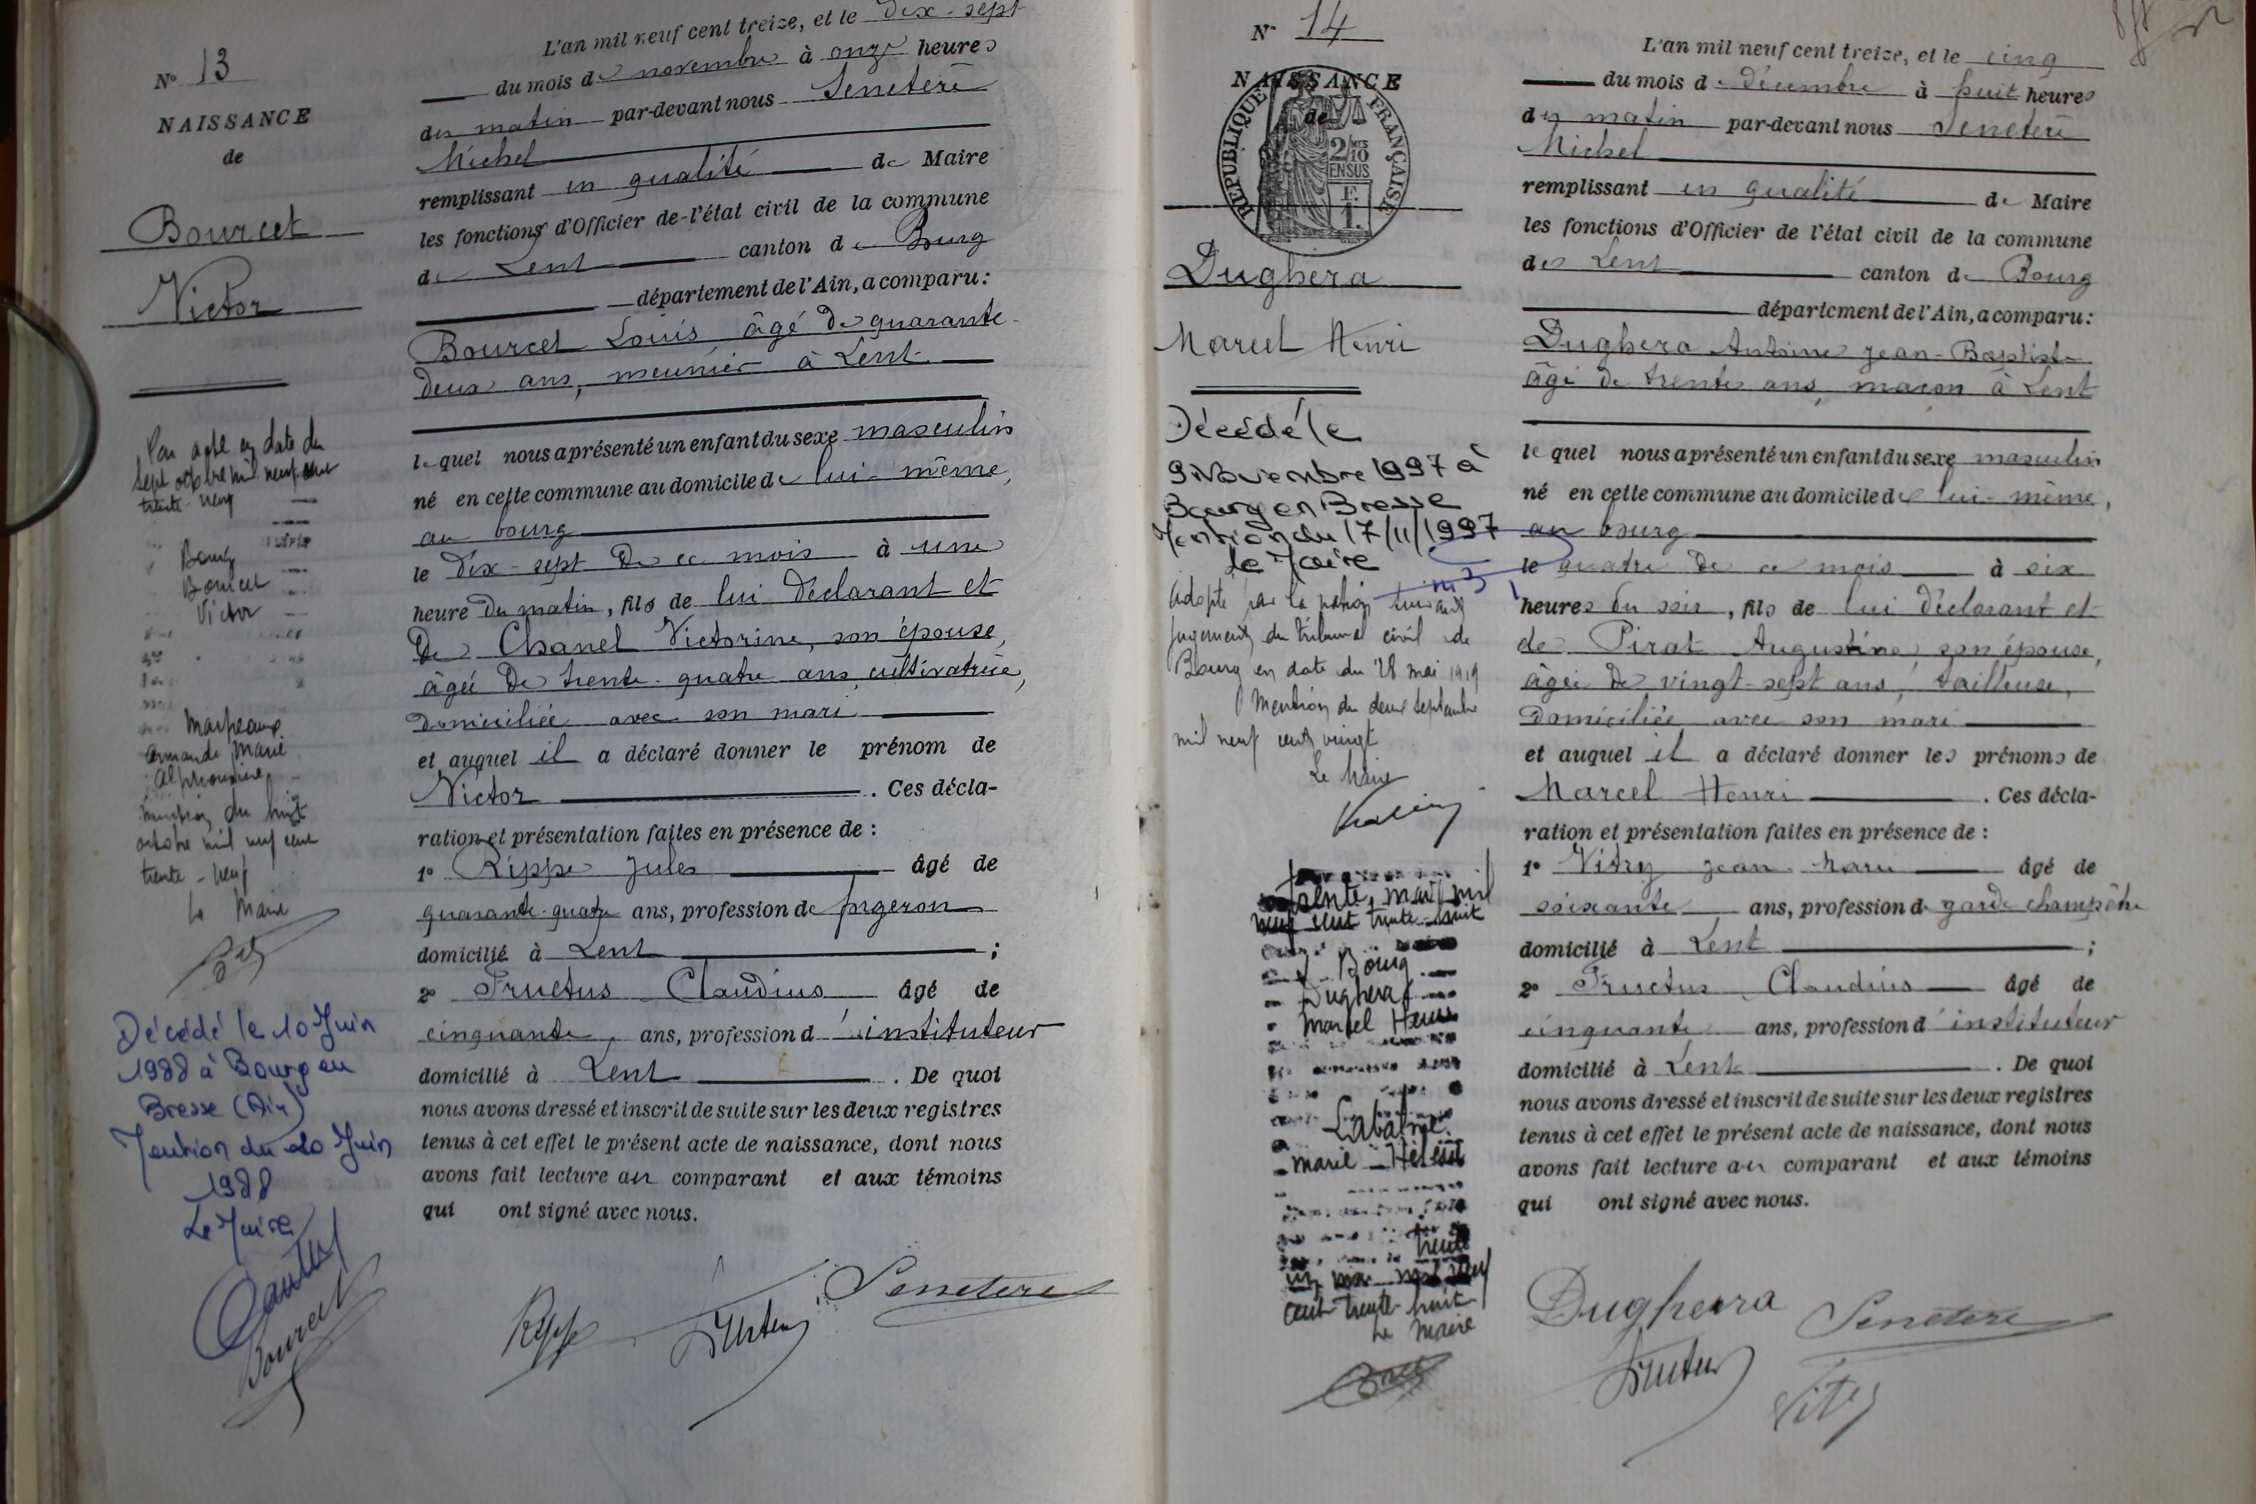 N° 13
NAISSANCE
de
Bourcet
Victor
Par acte en date du
sept octobre mil neuf cent
trente-neuf
Bourg
Bourcet
Victor
Marpeaux
Armande Marie
Alphonsine
mention du huit
octobre mil neuf cent
trente-neuf
Le Maire
Décédé le 10 Juin
1988 à Bourg en
Bresse (Ain)
Mention du 20 Juin
1988
Le Maire
Bourcet
L'an mil neuf cent treize, et le dix-sept
du mois de novembre à onze heures
du matin par-devant nous Seneterre
Michel
remplissant en qualité de Maire
les fonctions d'Officier de l'état civil de la commune
de Lent canton de Bourg
département de l'Ain, a comparu:
Bourcet Louis âgé de quarante-
deux ans, meunier à Lent
lequel nous a présenté un enfant du sexe masculin
né en cette commune au domicile de lui-même,
au bourg
le dix-sept de ce mois à une
heure du matin, fils de lui déclarant et
de Chanel Victorine, son épouse,
âgée de trente-quatre ans, cultivatrice,
domiciliée avec son mari
et auquel il a déclaré donner le prénom de
Victor . Ces décla-
ration et présentation faites en présence de :
1° Rippe Jules âgé de
quarante-quatre ans, profession de forgeron
domicilié à Lent ;
2° Fructus Claudius âgé de
cinquante ans, profession d'instituteur
domicilié à Lent . De quoi
nous avons dressé et inscrit de suite sur les deux registres
tenus à cet effet le présent acte de naissance, dont nous
avons fait lecture au comparant et aux témoins
qui ont signé avec nous.
Rippe Fructus Seneterre
N° 14
NAISSANCE
de
RÉPUBLIQUE FRANÇAISE
2/10 MES
EN SUS
F.
1.
Dughera
Marcel Henri
Décédé le
9 Novembre 1997 à
Bourg en Bresse
Mention du 17/11/1997
Le Maire
Adopté par la nation suivant
jugement du tribunal civil de
Bourg en date du 28 mai 1919
Mention du deux septembre
mil neuf cent vingt
Le Maire
trente, mai mil
neuf cent trente-huit
Bourg
Dughera
Marcel Henri
Labalme
Marie Hélène
trente
un mai mil neuf
cent trente-huit
Le Maire
L'an mil neuf cent treize, et le cinq
du mois de décembre à huit heures
du matin par-devant nous Seneterre
Michel
remplissant en qualité de Maire
les fonctions d'Officier de l'état civil de la commune
de Lent canton de Bourg
département de l'Ain, a comparu:
Dughera Antoine Jean-Baptiste
âgé de trente ans, maçon à Lent
lequel nous a présenté un enfant du sexe masculin
né en cette commune au domicile de lui-même,
au bourg
le quatre de ce mois à six
heures du soir, fils de lui déclarant et
de Pirat Augustine, son épouse,
âgée de vingt-sept ans, tailleuse,
domiciliée avec son mari
et auquel il a déclaré donner les prénoms de
Marcel Henri . Ces décla-
ration et présentation faites en présence de :
1° Vitry Jean Marie âgé de
soixante ans, profession de garde champêtre
domicilié à Lent ;
2° Fructus Claudius âgé de
cinquante ans, profession d'instituteur
domicilié à Lent . De quoi
nous avons dressé et inscrit de suite sur les deux registres
tenus à cet effet le présent acte de naissance, dont nous
avons fait lecture au comparant et aux témoins
qui ont signé avec nous.
Dughera Seneterre
Fructus Vitry